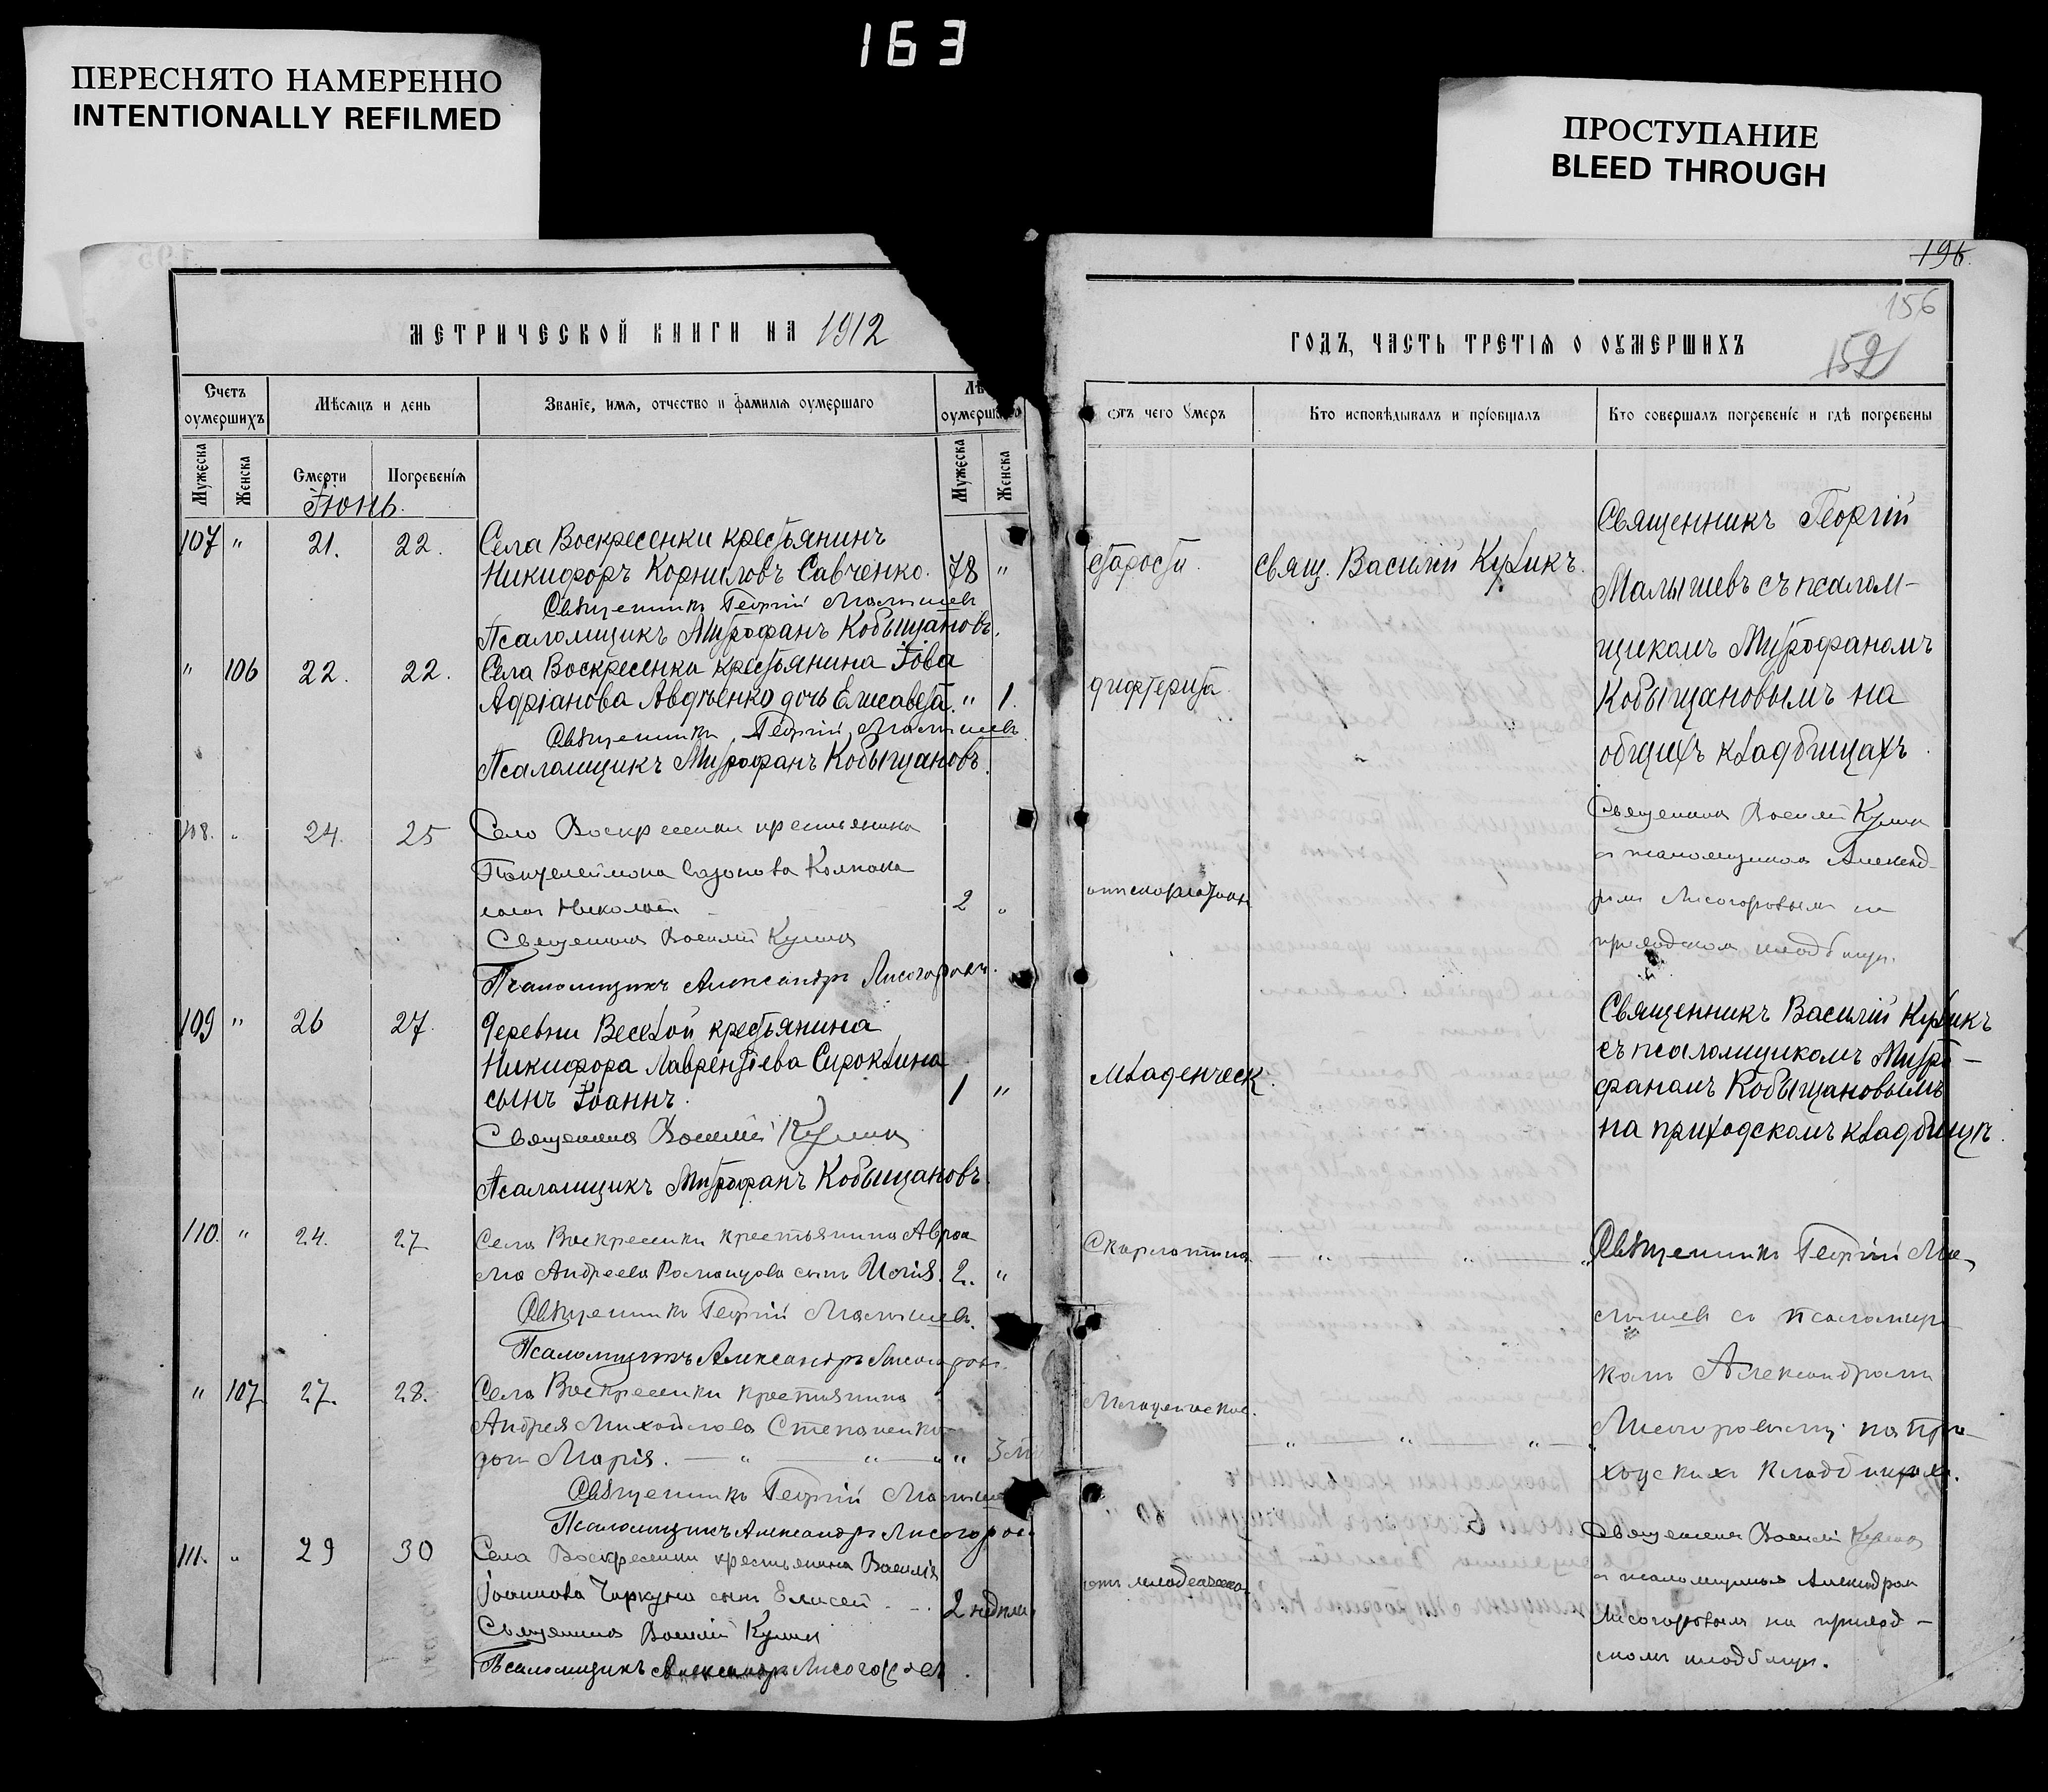 163
ПЕРЕСНЯТО НАМЕРЕННО
INTENTIONALLY REFILMED
ПРОСТУПАНИЕ
BLEED THROUGH
196.
156
152
МЕТРИЧЕСКОЙ КНИГИ НА 1912
ГОДЪ, ЧАСТЬ ТРЕТІЯ О ОУМЕРШИХЪ
Счетъ оумершихъ
Мѣсяцъ и день
Званіе, имя, отчество и фамилія оумершаго
Лѣ
оумершаго
отъ чего умеръ
Кто исповѣдывалъ и пріобщалъ
Кто совершалъ погребеніе и гдѣ погребены
Мужеска
Женска
Смерти
Погребенія
Мужеска
Женска
Іюнь.
107 " 21. 22. Села Воскресенки крестьянинъ
Никифоръ Корниловъ Савченко. 78 "
Священникъ Георгій Малышевъ
Псаломщикъ Митрофанъ Кобыщановъ.
старости
свящ. Василій Куликъ.
Священникъ Георгій
Малышевъ съ псалом-
щикомъ Митрофаномъ
Кобыщановымъ на
общихъ кладбищахъ.
" 106 22. 22. Села Воскресенка крестьянина Іова
Адріанова Авдѣенко дочь Елисавета. " 1.
Священникъ Георгій Малышевъ
Псаломщикъ Митрофанъ Кобыщановъ.
дифтерита
108. " 24. 25 Село Воскресенки крестьянина
Пантелеймона Сазонова Колпака
сынъ Николай 2 "
Священникъ Василій Куликъ
Псаломщикъ Александръ Лисогоровъ.
отъ скарлатины
Священникъ Василій Куликъ
съ псаломщикомъ Александ-
ромъ Лисогоровымъ на
приходскомъ кладбищѣ.
109 " 26 27. Деревни Веселой крестьянина
Никифора Лаврентіева Сироклина
сынъ Іоаннъ. 1 "
Священникъ Василій Куликъ
Псаломщикъ Митрофанъ Кобыщановъ.
младенческ.
Священникъ Василій Куликъ
съ псаломщикомъ Митро-
фаномъ Кобыщановымъ
на приходскомъ кладбищѣ.
110. " 24. 27 Села Воскресенки крестьянина Авраа
ма Андреева Романцова сынъ Илія. 2. "
Священникъ Георгій Малышевъ.
Псаломщикъ Александръ Лисогоровъ.
Скарлатина — " — " — "
Священникъ Георгій Ма-
лышевъ съ псаломщи-
комъ Александромъ
Лисогоровымъ на при-
ходскихъ кладбищахъ.
" 107 27. 28. Села Воскресенки крестьянина
Андрея Михайлова Степаненко
дочь Марія. — " — " — " " 3
Священникъ Георгій Малыше
Псаломщикъ Александръ Лисогоров
Младенческ.
— " — " — " — "
111. " 29 30 Села Воскресенки крестьянина Василія
Іоаннова Чаркуна сынъ Елисей 2 недѣли
Священникъ Василій Куликъ
Псаломщикъ Александръ Лисогоровъ.
отъ младенческо
Священникъ Василій Куликъ
съ псаломщикомъ Александром
Лисогоровымъ на приход-
скомъ кладбищѣ.